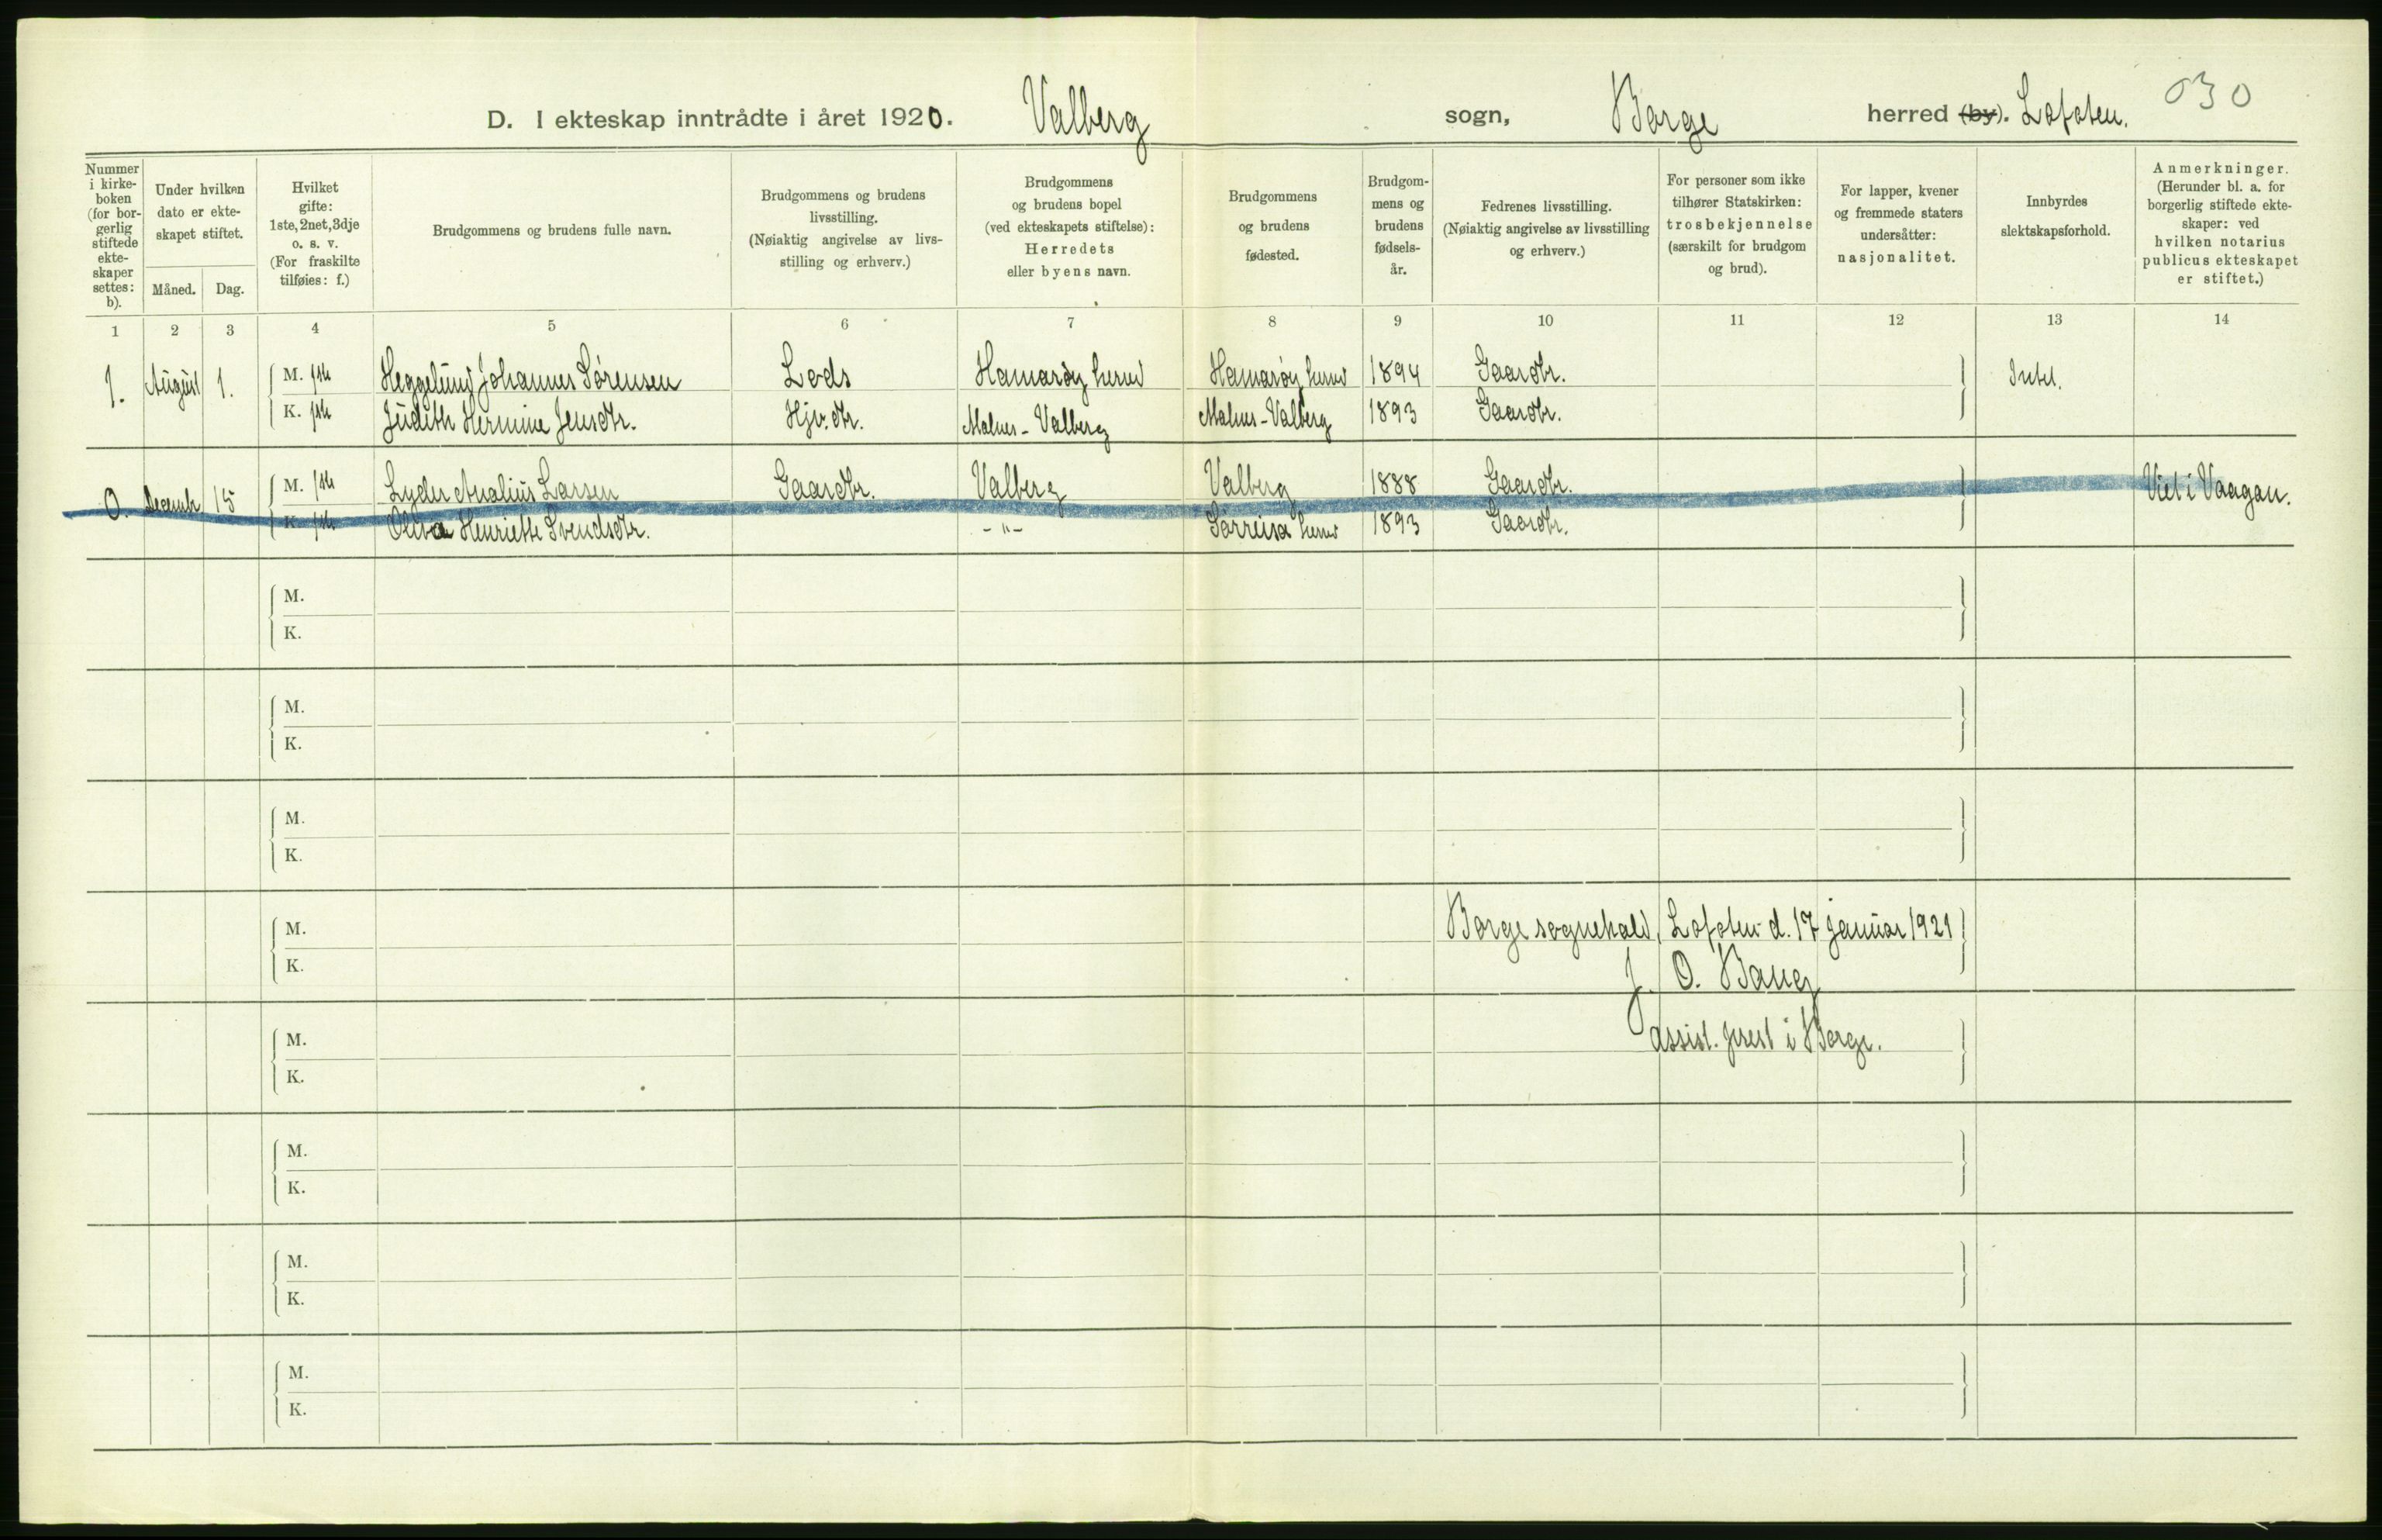 D. I ekteskap inntrådte i året 1920. Valberg sogn, Borge herred (by). Lofoten. 030
Nummer i kirkeboken (for borgerlig stiftede ekteskaper settes: b).
Under hvilken dato er ekteskapet stiftet.
Måned. Dag.
Hvilket gifte: 1ste, 2net, 3dje o. s. v. (For fraskilte tilføies: f.)
Brudgommens og brudens fulle navn.
Brudgommens og brudens livsstilling. (Nøiaktig angivelse av livsstilling og erhverv.)
Brudgommens og brudens bopel (ved ekteskapets stiftelse): Herredets eller byens navn.
Brudgommens og brudens fødested.
Brudgommens og brudens fødselsår.
Fedrenes livsstilling. (Nøiaktig angivelse av livsstilling og erhverv.)
For personer som ikke tilhører Statskirken: trosbekjennelse (særskilt for brudgom og brud).
For lapper, kvener og fremmede staters undersåtter: nasjonalitet.
Innbyrdes slektskapsforhold.
Anmerkninger. (Herunder bl. a. for borgerlig stiftede ekteskaper: ved hvilken notarius publicus ekteskapet er stiftet.)
1 2 3 4 5 6 7 8 9 10 11 12 13 14
1. August 1. M. 1ste Heggelund Johannes Sørensen Lods Hamarøy herred Hamarøy herred 1894 Gaardbr. Intet.
K. 1ste Judith Hermine Jensdtr. Hjv. dtr. Malnes - Valberg Malnes - Valberg 1893 Gaardbr.
0. Decemb 15 M. 1ste Lyder Analius Larsen Gaardbr. Valberg Valberg 1888 Gaardbr. Viet i Vaagan.
K. 1ste Henriette Svendsdtr. - " - Sørreisa herred 1893 Gaardbr.
M.
K.
M.
K.
M.
K.
M. Borge sognekald, Lofoten d. 17 januar 1921
K. J. O. Baug
M. assist. prest i Borge.
K.
M.
K.
M.
K.
M.
K.